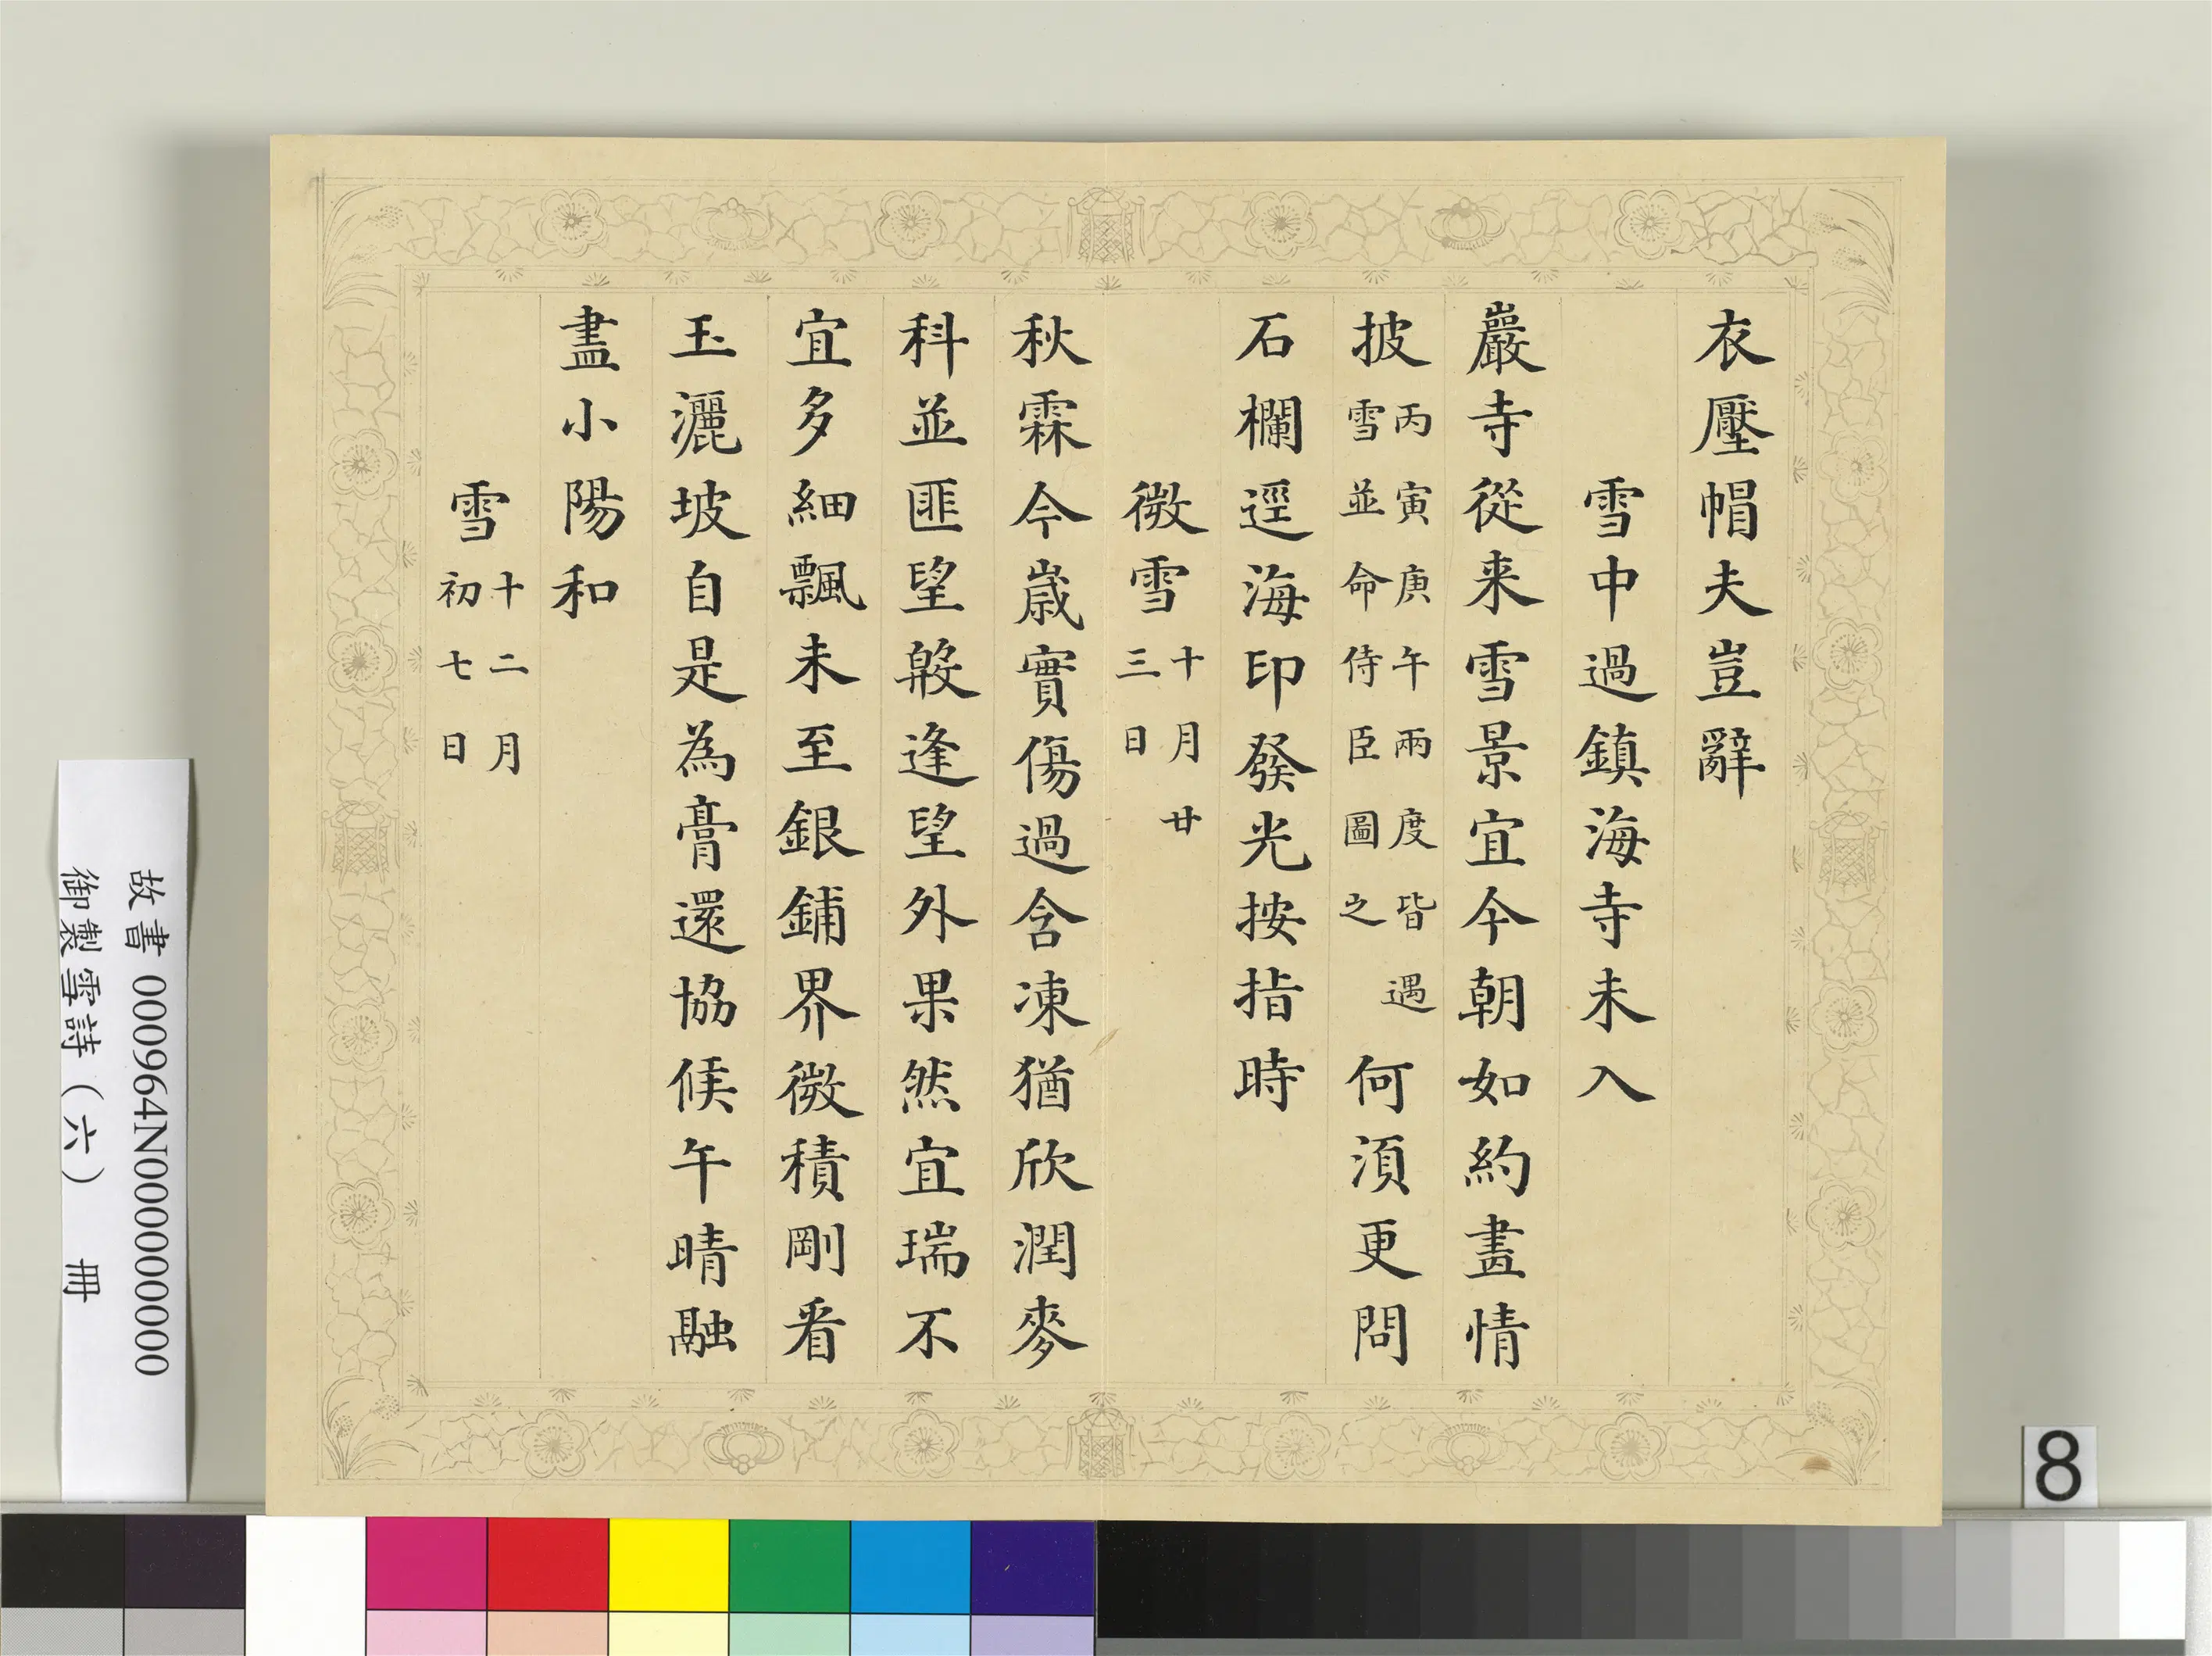 衣壓帽夫豈辭
雪中過鎮海寺未入
巖寺從来雪景宜今朝如約畫情
披丙寅庚午兩度皆遇雪並命侍臣圖之何須更問
石欄逕海印發光按指時
微雪十月廿三日
秋霖今歲實傷過含凍猶欣潤麥
科並匪望㲉逢望外果然宜瑞不
宜多細飄未至銀鋪界微積剛看
玉灑坡自是為膏還協候午晴融
盡小陽和
雪十二月初七日
故書 000964N000000000
御製雪詩（六） 冊
8